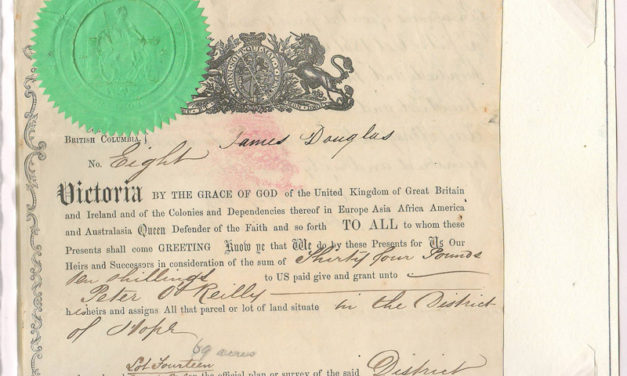 British Columbia,
James Douglas
No. Eight
Victoria BY THE GRACE OF GOD of the United Kingdom of Great Britain
and Ireland and of the Colonies and Dependencies thereof in Europe Asia Africa America
and Australasia Queen Defender of the Faith and so forth TO ALL to whom these
Presents shall come GREETING Know ye that We do by these Presents for Us Our
Heirs and Successors in consideration of the sum of Thirty four Pounds
ten shillings to US paid give and grant unto
Peter O'Reilly
heirs and assigns All that parcel or lot of land situate in the District
of Hope
69 acres
Lot Fourteen
on the official plan or survey of the said District